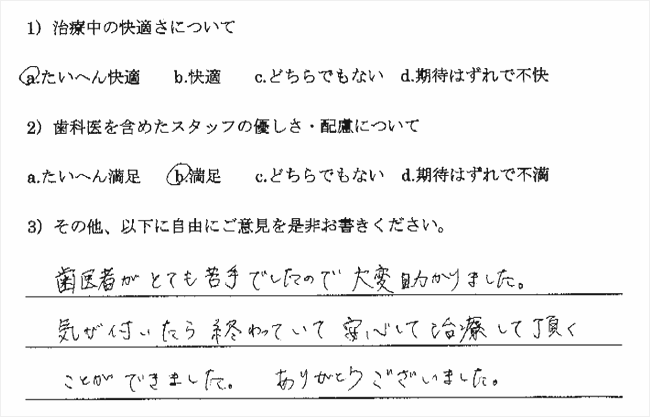 1) 治療中の快適さについて
a.たいへん快適 b.快適 c.どちらでもない d.期待はずれで不快
2) 歯科医を含めたスタッフの優しさ・配慮について
a.たいへん満足 b.満足 c.どちらでもない d.期待はずれで不満
3) その他、以下に自由にご意見を是非お書きください。
歯医者がとても苦手でしたので大変助かりました。
気が付いたら終わっていて安心して治療して頂く
ことができました。 ありがとうございました。